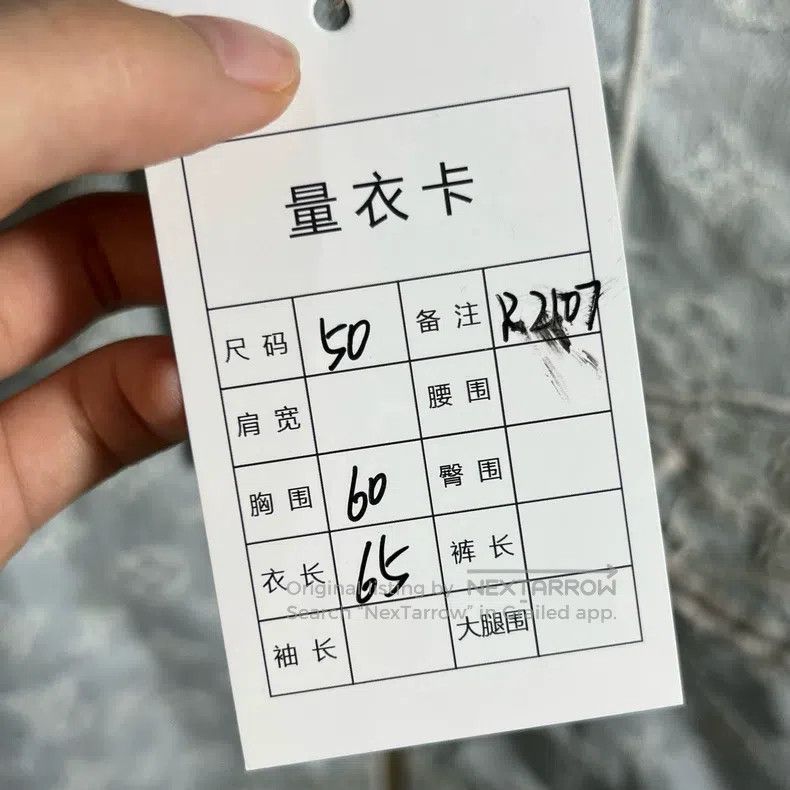 量衣卡
尺码 50 备注 R2107
肩宽 腰围
胸围 60 臀围
衣长 65 裤长
Original listing by NEXTARROW
Search "NexTarrow" in Grailed app.
袖长 大腿围